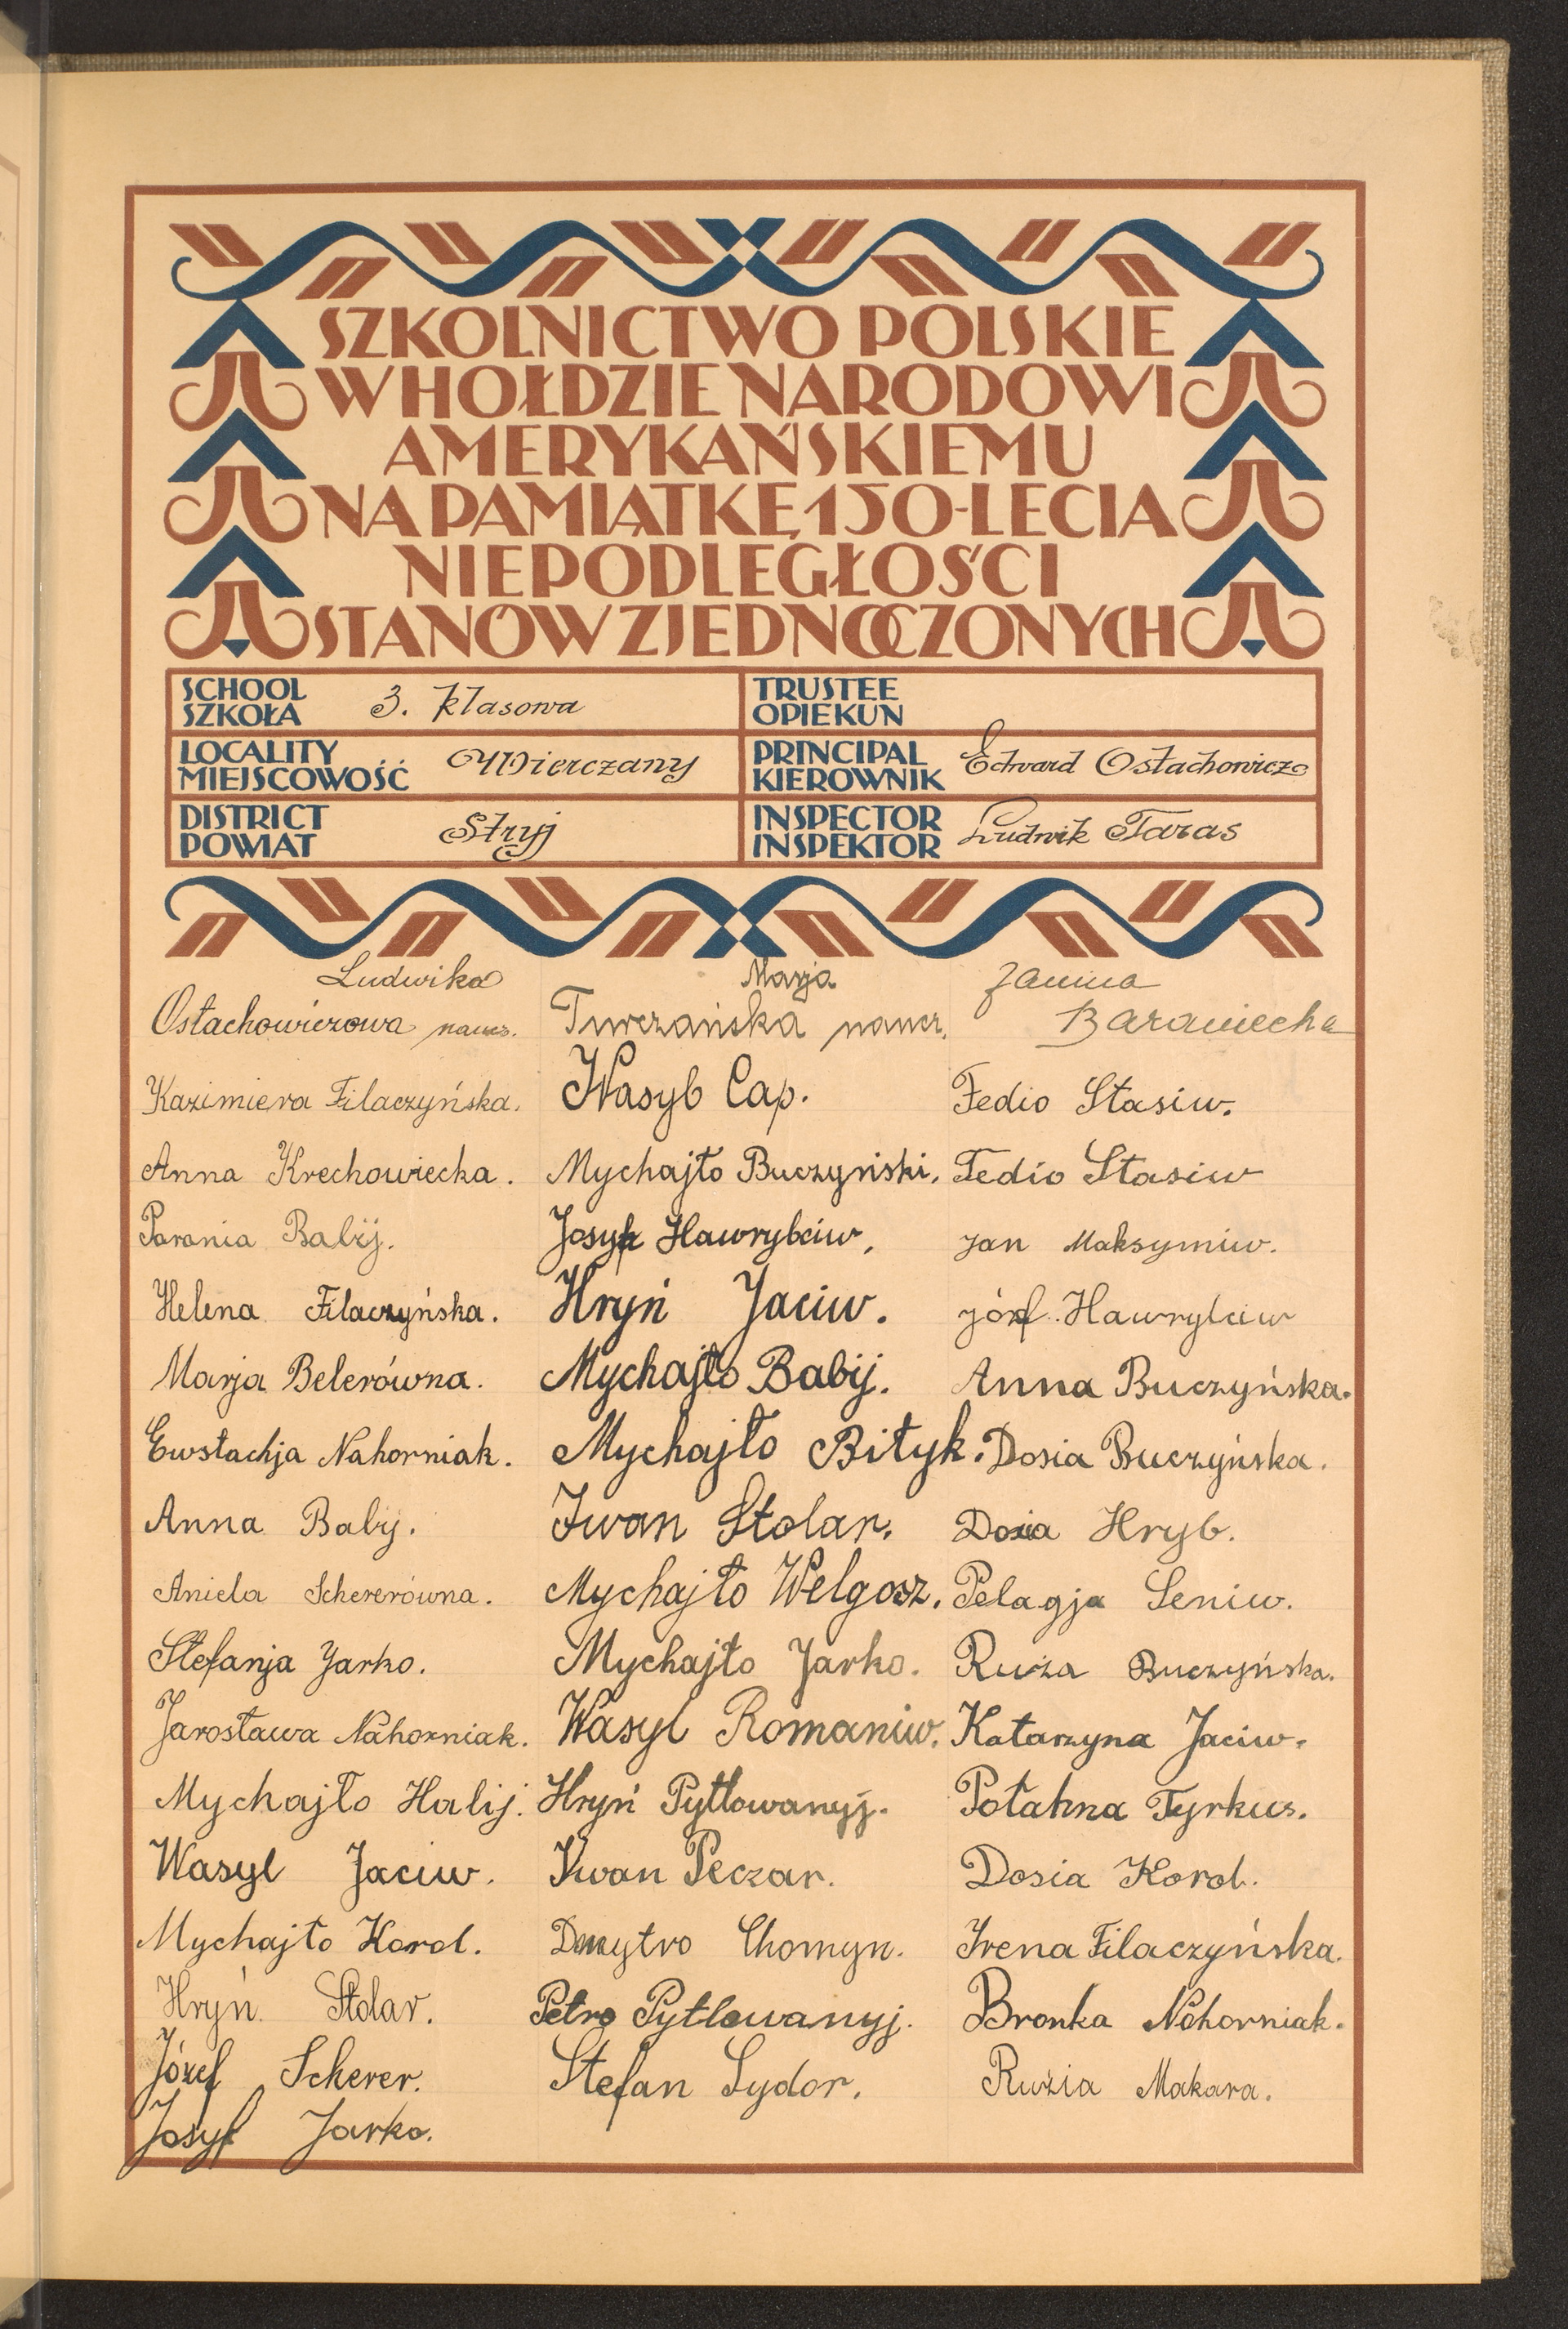 SZKOLNICTWO POLSKIE
W HOŁDZIE NARODOWI
AMERYKAŃSKIEMU
NA PAMIĄTKĘ 150-LECIA
NIEPODLEGŁOŚCI
STANÓW ZJEDNOCZONYCH
SCHOOL
SZKOŁA
3. klasowa
TRUSTEE
OPIEKUN
LOCALITY
MIEJSCOWOŚĆ
Wierczany
PRINCIPAL
KIEROWNIK
Edward Ostachowicz
DISTRICT
POWIAT
Stryj
INSPECTOR
INSPEKTOR
Ludwik Taras
Ludwika
Ostachowiczowa naucz.
Kazimiera Filaczyńska.
Anna Krechowiecka.
Parania Babij.
Helena Filaczyńska.
Marja Belerówna.
Ewstachja Nahorniak.
Anna Babij.
Aniela Schererówna.
Stefanja Jarko.
Jarosława Nahorniak.
Mychajło Halij.
Wasyl Jaciw.
Mychajło Korol.
Hryń Stolar.
Józef Scherer.
Josyf Jarko.
Marja
Turczańska naucz.
Wasyl Cap.
Mychajło Buczyński.
Josyf Hawrylciw,
Hryń Jaciw.
Mychajło Babij.
Mychajło Bityk.
Iwan Stolar.
Mychajło Welgosz.
Mychajło Jarko.
Wasyl Romaniw.
Hryń Pytlowanyj.
Iwan Peczar.
Dmytro Chomyn.
Petro Pytlowanyj.
Stefan Sydor.
Janina
Baraniecka
Fedio Stasiw.
Fedio Stasiw
Jan Maksymiw.
Józef Hawrylciw
Anna Buczyńska.
Dosia Buczyńska.
Dosia Hryb.
Pelagja Seniw.
Ruża Buczyńska.
Katarzyna Jaciw.
Potahna Tyrkus.
Dosia Korol.
Irena Filaczyńska.
Bronka Nahorniak.
Ruzia Makara.